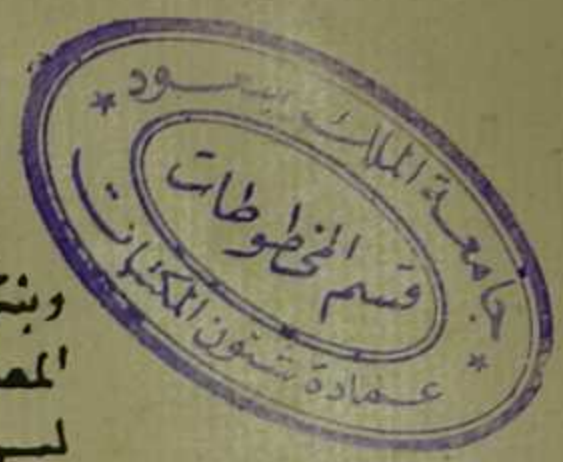 جامعة الملك سعود
قسم المخطوطات
عمادة شئون المكتبات
لسو